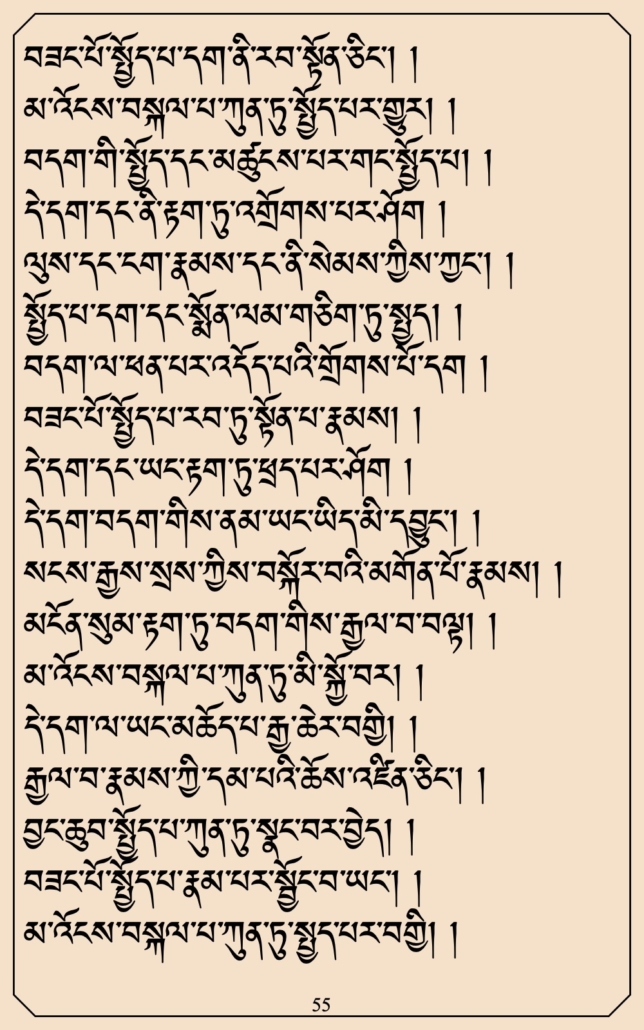 བཟང་པོ་སྤྱོད་པ་དག་ནི་རབ་སྟོན་ཅིང་། །
མ་འོངས་བསྐལ་པ་ཀུན་ཏུ་སྤྱོད་པར་གྱུར། །
བདག་གི་སྤྱོད་དང་མཚུངས་པར་གང་སྤྱོད་པ། །
དེ་དག་དང་ནི་རྟག་ཏུ་འགྲོགས་པར་ཤོག །
ལུས་དང་ངག་རྣམས་དང་ནི་སེམས་ཀྱིས་ཀྱང་། །
སྤྱོད་པ་དག་དང་སྨོན་ལམ་གཅིག་ཏུ་སྤྱད། །
བདག་ལ་ཕན་པར་འདོད་པའི་གྲོགས་པོ་དག །
བཟང་པོ་སྤྱོད་པ་རབ་ཏུ་སྟོན་པ་རྣམས། །
དེ་དག་དང་ཡང་རྟག་ཏུ་ཕྲད་པར་ཤོག །
དེ་དག་བདག་གིས་ནམ་ཡང་ཡིད་མི་དབྱུང་། །
སངས་རྒྱས་སྲས་ཀྱིས་བསྐོར་བའི་མགོན་པོ་རྣམས། །
མངོན་སུམ་རྟག་ཏུ་བདག་གིས་རྒྱལ་བ་བལྟ། །
མ་འོངས་བསྐལ་པ་ཀུན་ཏུ་མི་སྐྱོ་བར། །
དེ་དག་ལ་ཡང་མཆོད་པ་རྒྱ་ཆེར་བགྱི། །
རྒྱལ་བ་རྣམས་ཀྱི་དམ་པའི་ཆོས་འཛིན་ཅིང་། །
བྱང་ཆུབ་སྤྱོད་པ་ཀུན་ཏུ་སྣང་བར་བྱེད། །
བཟང་པོ་སྤྱོད་པ་རྣམ་པར་སྦྱོང་བ་ཡང་། །
མ་འོངས་བསྐལ་པ་ཀུན་ཏུ་སྤྱད་པར་བགྱི། །
55